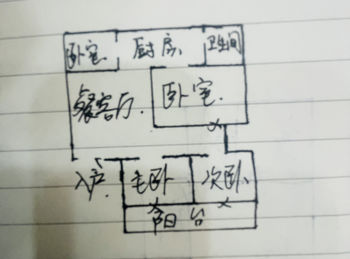 卧室 厨房 卫间
餐客厅 卧室
入户 主卧 次卧
阳台